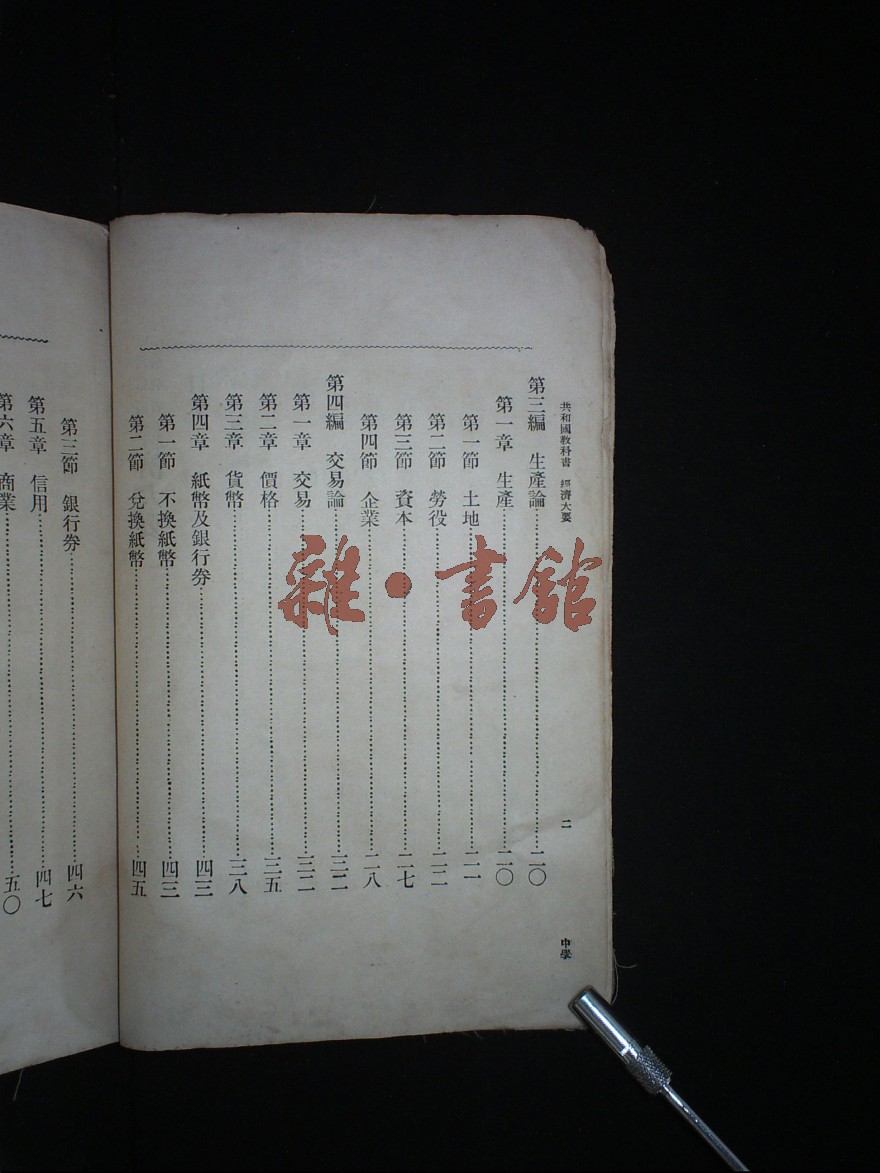 共和國教科書 經濟大要 二 中學
第三編 生產論 二〇
第一章 生產 二〇
第一節 土地 二一
第二節 勞役 二二
第三節 資本 二七
第四節 企業 二八
第四編 交易論 三二
第一章 交易 三二
第二章 價格 三五
第三章 貨幣 三八
第四章 紙幣及銀行券 四三
第一節 不換紙幣 四三
第二節 兌換紙幣 四五
第三節 銀行券 四六
第五章 信用 四七
第六章 商業 五〇
雜·書館